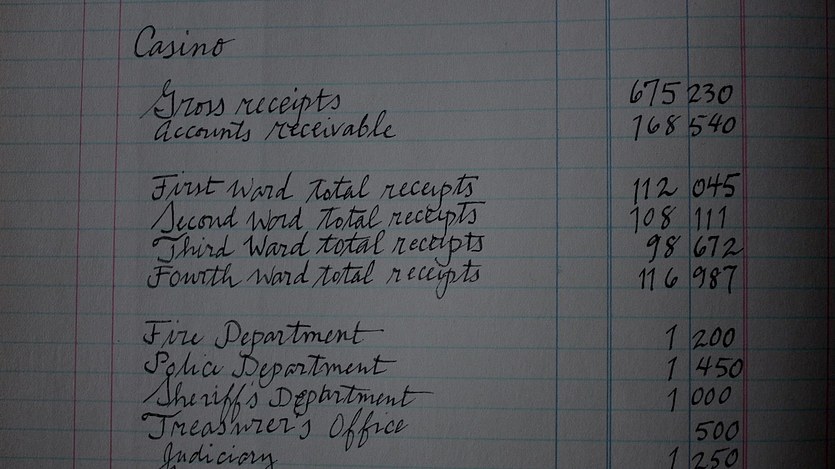 Casino
Gross receipts 675 230
Accounts receivable 768 540
First Ward total receipts 112 045
Second Word total receipts 108 111
Third Ward total receipts 98 672
Fourth Ward total receipts 116 987
Fire Department 1 200
Police Department 1 450
Sheriff's Department 1 000
Treasurer's Office 500
Judiciary 1 250